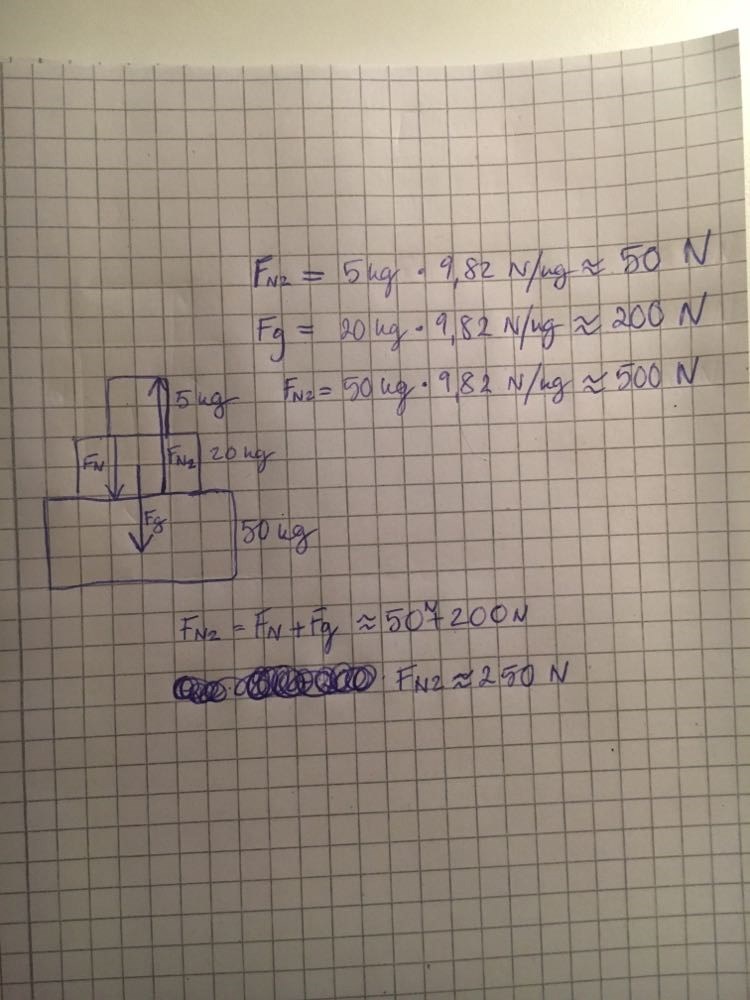 F_N2 = 5 kg · 9,82 N/kg ≈ 50 N
Fg = 20 kg · 9,82 N/kg ≈ 200 N
F_N2 = 50 kg · 9,82 N/kg ≈ 500 N
5 kg
F_N F_N2 20 kg
Fg 50 kg
F_N2 = F_N + Fg ≈ 50N + 200N
F_N2 ≈ 250 N